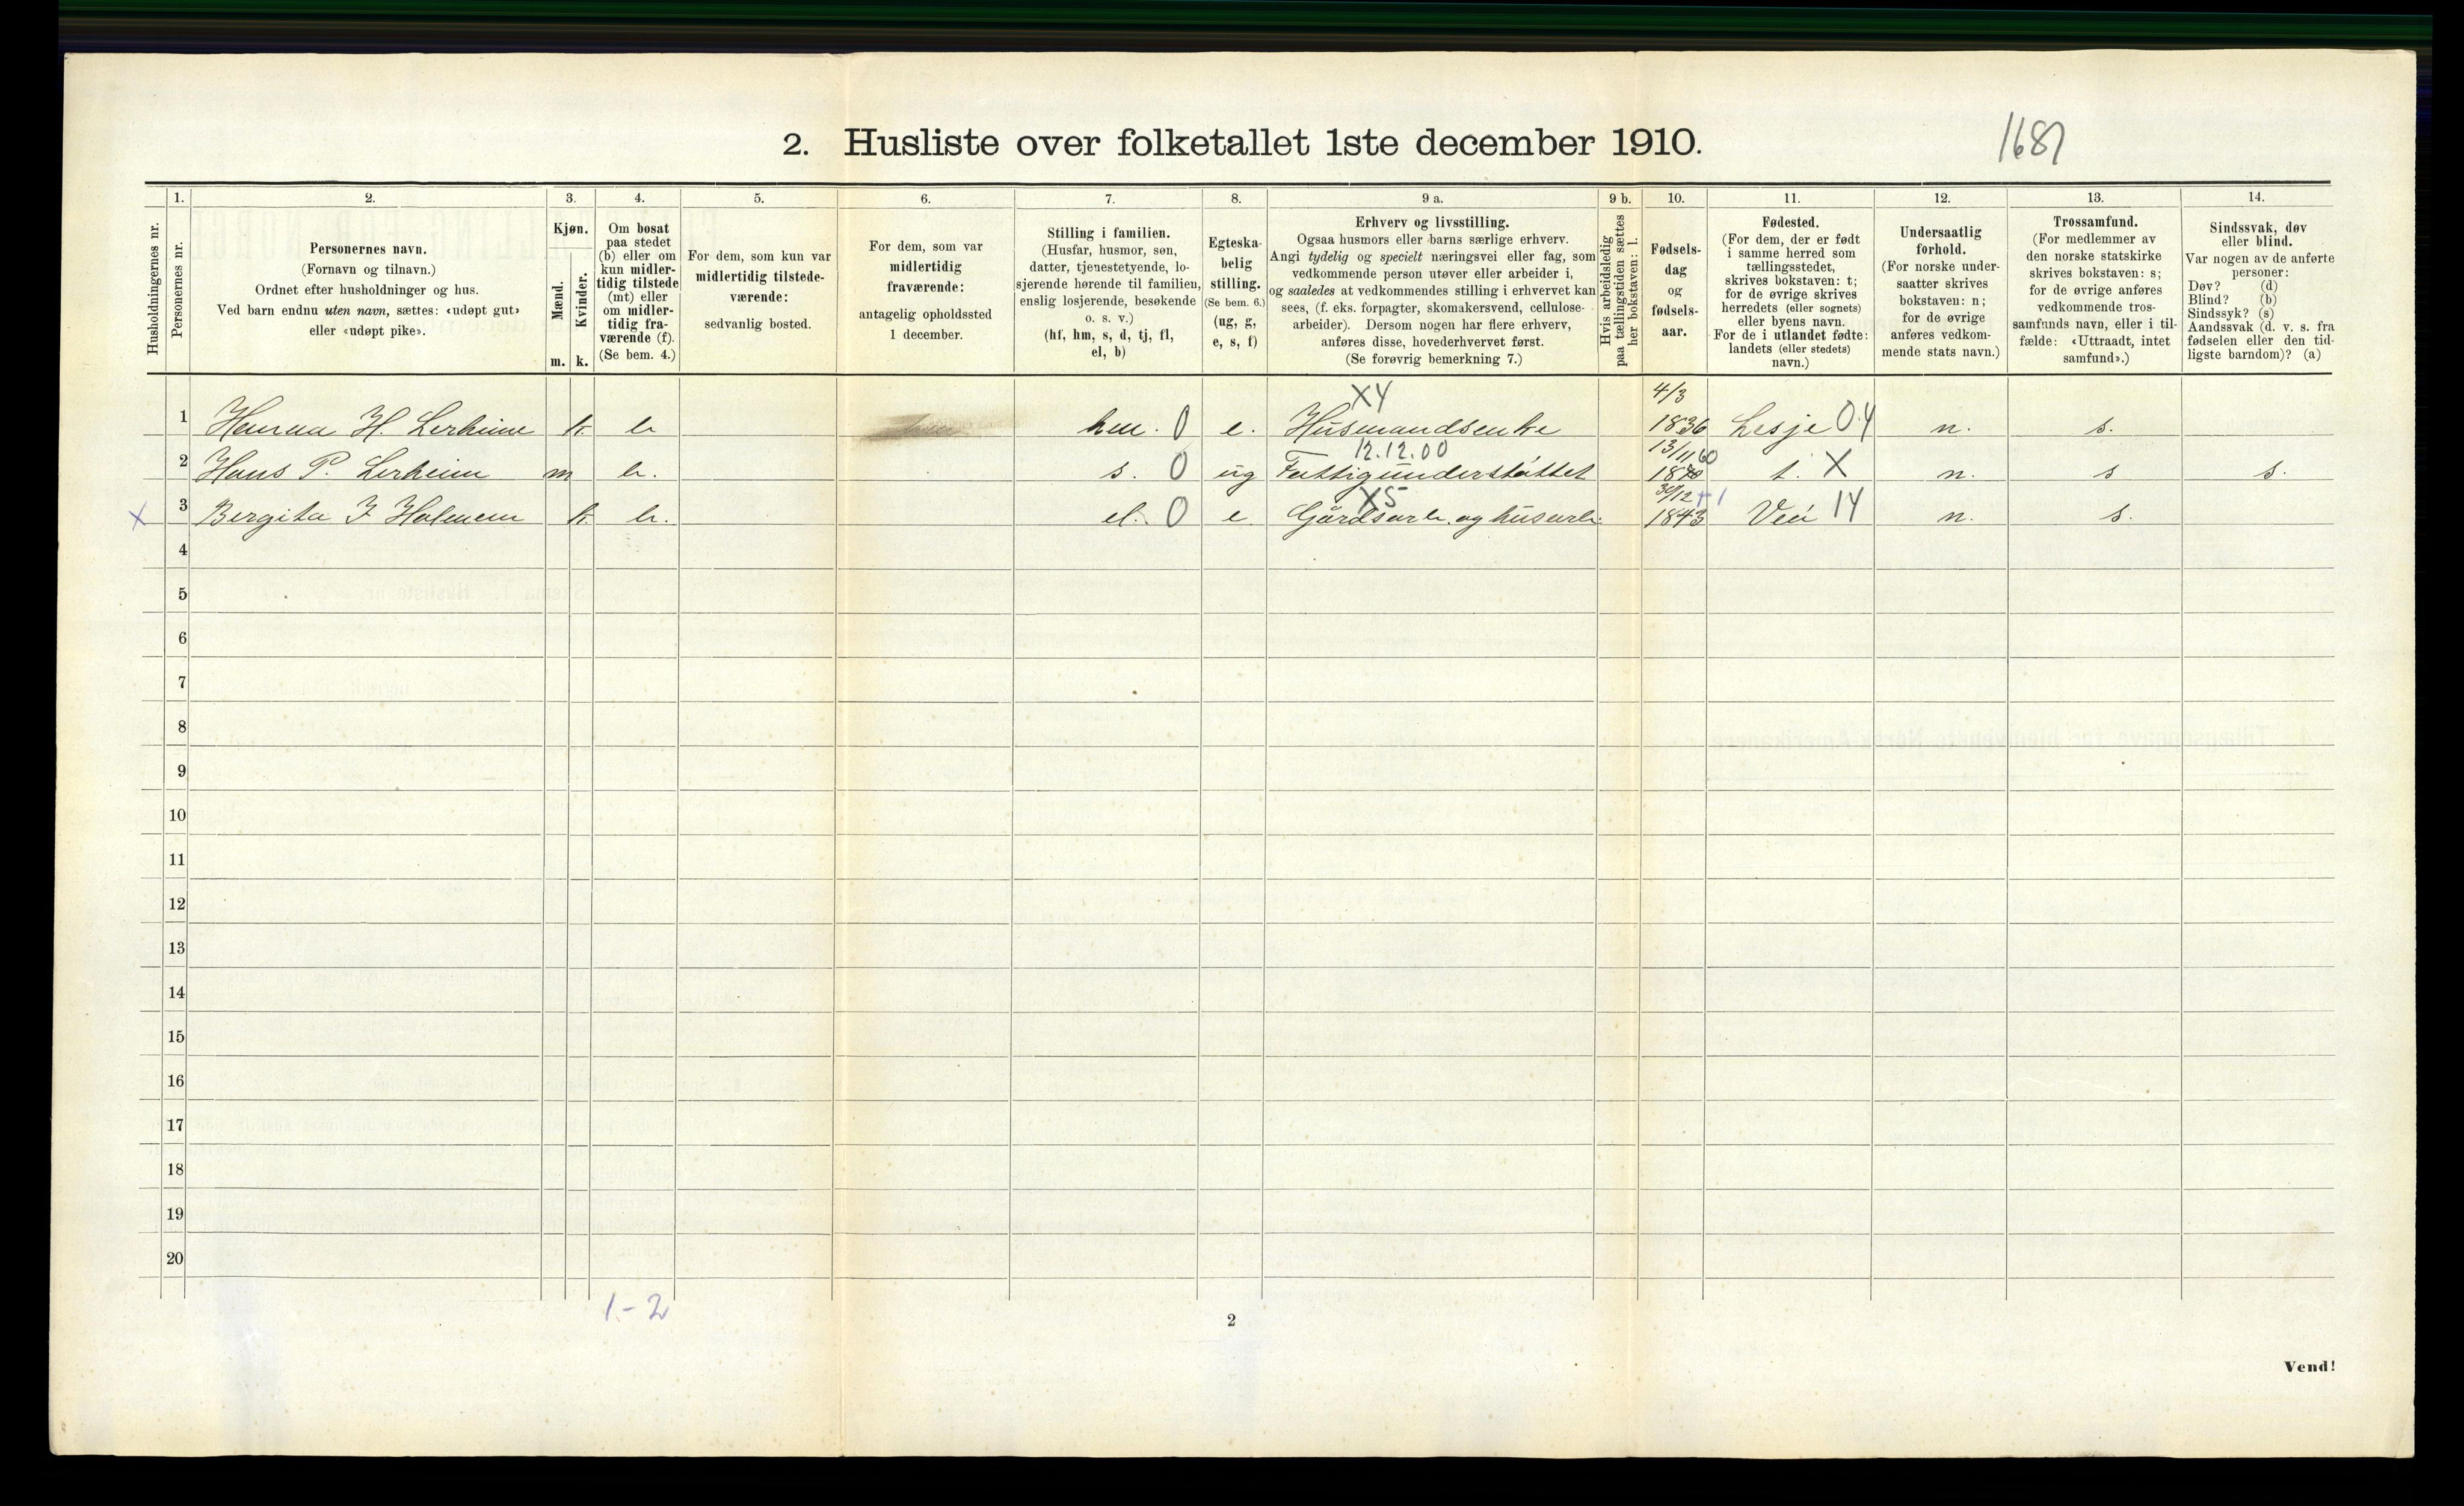 2. Husliste over folketallet 1ste december 1910.
1681
Husholdningernes nr.
1.
Personernes nr.
2.
Personernes navn.
(Fornavn og tilnavn.)
Ordnet efter husholdninger og hus.
Ved barn endnu uten navn, sættes: «udøpt gut»
eller «udøpt pike».
3.
Kjøn.
Mænd.
Kvinder.
m. k.
4.
Om bosat
paa stedet
(b) eller om
kun midler-
tidig tilstede
(mt) eller
om midler-
tidig fra-
værende (f).
(Se bem. 4.)
5.
For dem, som kun var
midlertidig tilstede-
værende:
sedvanlig bosted.
6.
For dem, som var
midlertidig
fraværende:
antagelig opholdssted
1 december.
7.
Stilling i familien.
(Husfar, husmor, søn,
datter, tjenestetyende, lo-
sjerende hørende til familien,
enslig losjerende, besøkende
o. s. v.)
(hf, hm, s, d, tj, fl,
el, b)
8.
Egteska-
belig
stilling.
(Se bem. 6.)
(ug, g,
e, s, f)
9 a.
Erhverv og livsstilling.
Ogsaa husmors eller barns særlige erhverv.
Angi tydelig og specielt næringsvei eller fag, som
vedkommende person utøver eller arbeider i,
og saaledes at vedkommendes stilling i erhvervet kan
sees, (f. eks. forpagter, skomakersvend, cellulose-
arbeider). Dersom nogen har flere erhverv,
anføres disse, hovederhvervet først.
(Se forøvrig bemerkning 7.)
9 b.
Hvis arbeidsledig
paa tællingstiden sættes
her bokstaven: l.
10.
Fødsels-
dag
og
fødsels-
aar.
11.
Fødested.
(For dem, der er født
i samme herred som
tællingsstedet,
skrives bokstaven: t;
for de øvrige skrives
herredets (eller sognets)
eller byens navn.
For de i utlandet fødte:
landets (eller stedets)
navn.)
12.
Undersaatlig
forhold.
(For norske under-
saatter skrives
bokstaven: n;
for de øvrige
anføres vedkom-
mende stats navn.)
13.
Trossamfund.
(For medlemmer av
den norske statskirke
skrives bokstaven: s;
for de øvrige anføres
vedkommende tros-
samfunds navn, eller i til-
fælde: «Uttraadt, intet
samfund».)
14.
Sindssvak, døv
eller blind.
Var nogen av de anførte
personer:
Døv? (d)
Blind? (b)
Sindssyk? (s)
Aandssvak (d. v. s. fra
fødselen eller den tid-
ligste barndom)? (a)
XY 4/3
1 H. Lerheim k. b hm. 0 e. Husmandsenke 1836 Lesje 04 n. s.
12.12.00 13/11 60
2 Hans P. Lerheim m b. s. 0 ug Fattigunderstøttet 1870 t. X n. s s.
X5 30/12 +1
X 3 Bergita J Holmem k. b. el. 0 e Gårdsarb. og husarb. 1843 Veø 14 n. s.
4
5
6
7
8
9
10
11
12
13
14
15
16
17
18
19
20
1 - 2
2
Vend!